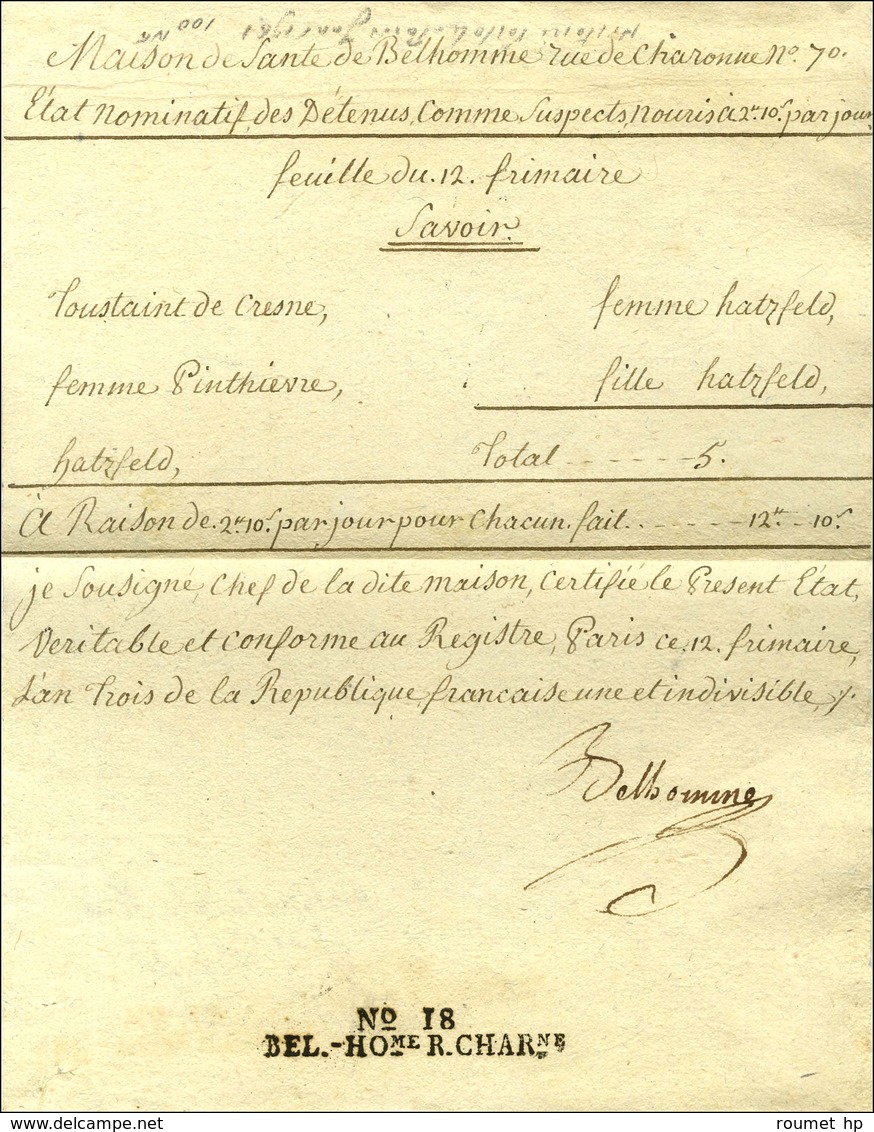 Maison de Santé de Belhomme rue de Charonne No. 70.
Etat nominatif, des Détenus, Comme Suspects, nouris à 2tt 10s. par jour
feuille du. 12. frimaire
Savoir.
Toustaint de Cresne,
femme Pinthievre,
hatzfeld,
femme hatzfeld,
fille hatzfeld,
Total - - - - - - 5.
A Raison de. 2tt. 10s. par jour pour Chacun. fait. - - - - - - 12tt. - 10s
je Sousigné, Chef de la dite maison, Certifié le Present Etat,
Veritable et Conforme au Registre, Paris ce. 12. frimaire,
L'an Trois de la Republique, francaise une et indivisible, /.
Belhomme
No 18
BEL.-HOME R. CHARNE
delcampe.net
roumet hp